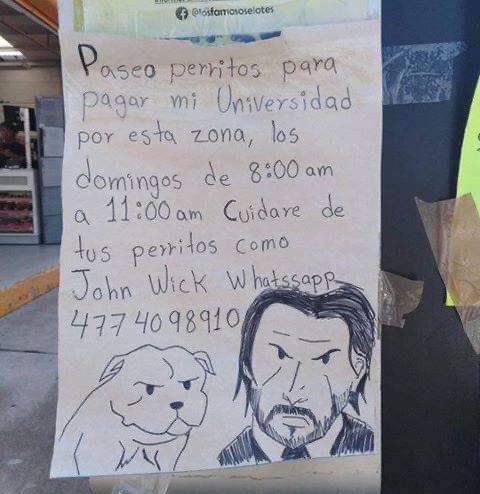 @losfamososelotes
Paseo perritos para
pagar mi Universidad
por esta zona, los
domingos de 8:00 am
a 11:00 am Cuidare de
tus perritos como
John Wick Whatssapp
477 4098910